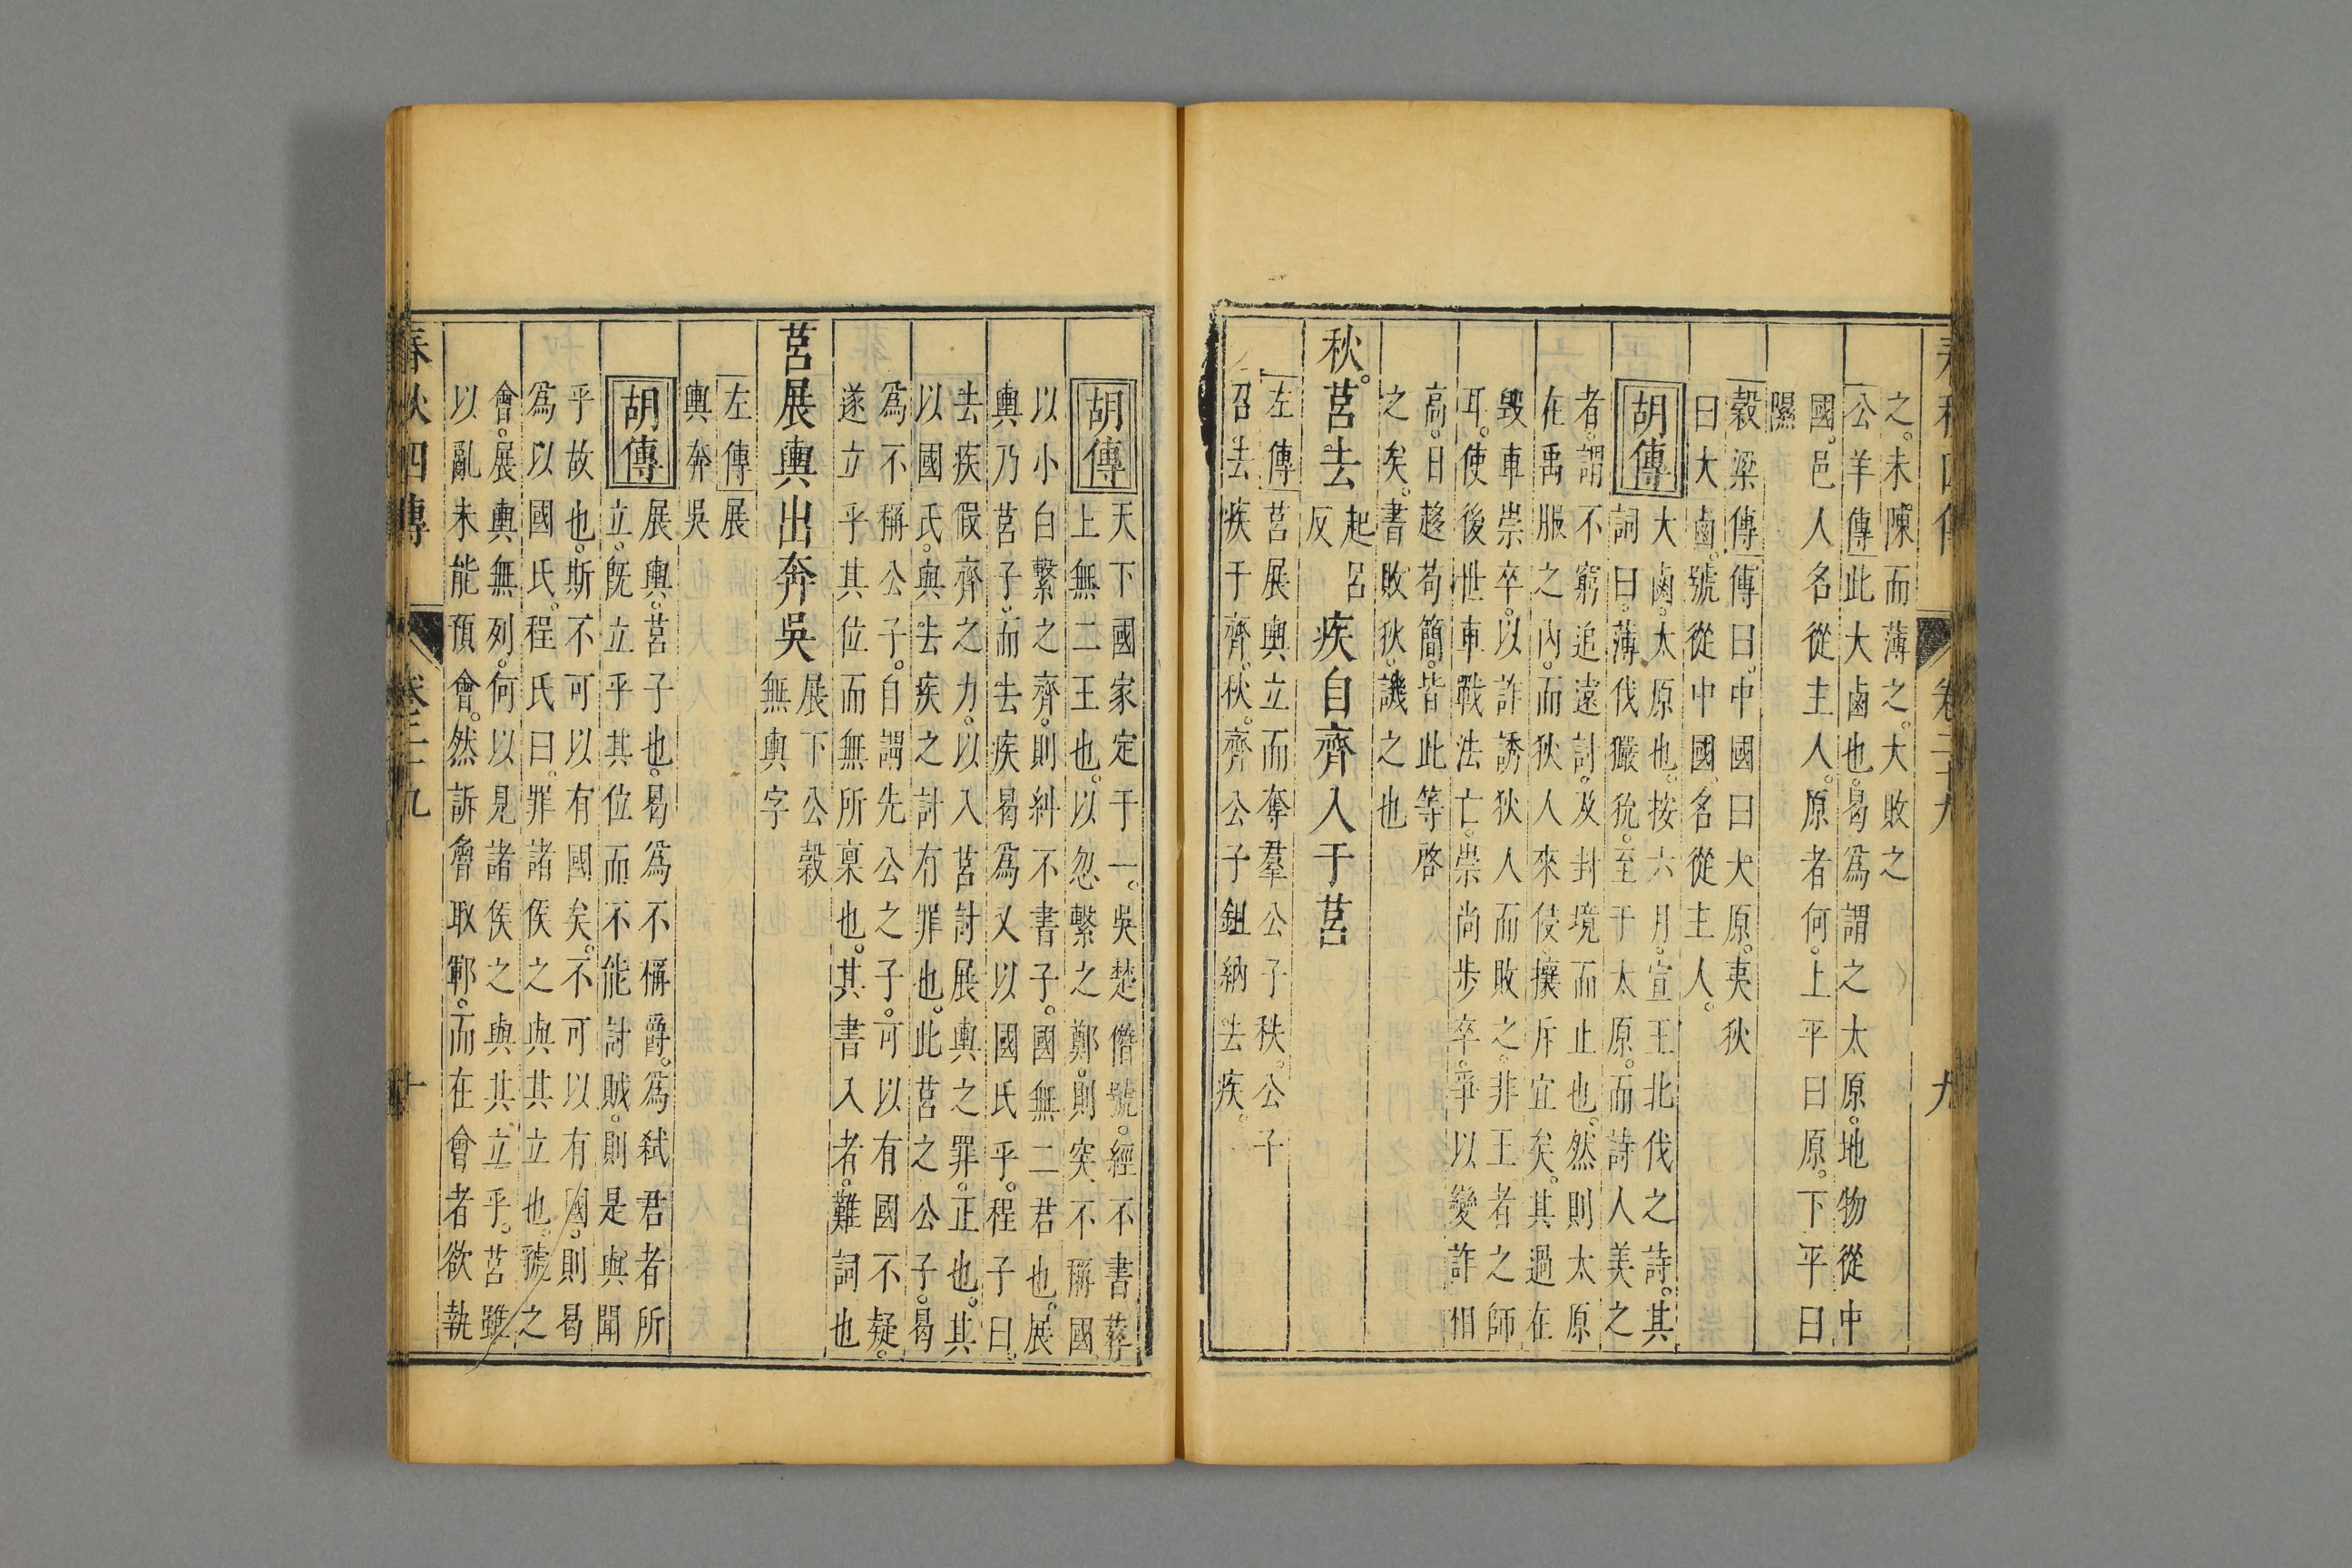 春秋四傳 卷二十九 九
之。未陳而薄之。大敗之
公羊傳此大鹵也。曷爲謂之太原。地物從中
國。邑人名從主人。原者何。上平曰原。下平曰
隰
穀梁傳傳曰。中國曰大原。夷狄
曰大鹵。號從中國。名從主人。
胡傳大鹵。太原也。按六月。宣王北伐之詩。其
詞曰。薄伐玁狁。至于太原。而詩人美之
者。謂不窮追遠討。及封境而止也。然則太原
在禹服之內。而狄人來侵。攘斥宜矣。其過在
毀車崇卒。以詐誘狄人而敗之。非王者之師
耳。使後世車戰法亡。崇尚步卒。爭以變詐相
高。日趍苟簡。皆此等啓
之矣。書敗狄。譏之也
秋。莒去起呂反疾自齊入于莒
左傳莒展輿立而奪羣公子秩。公子
召去疾于齊。秋。齊公子鉏納去疾。
胡傳天下國家定于一。吳楚僭號。經不書葬
上無二王也。以忽繫之鄭。則突不稱國
以小白繫之齊。則糾不書子。國無二君也。展
輿乃莒子。而去疾曷爲又以國氏乎。程子曰。
去疾假齊之力。以入莒討展輿之罪。正也。其
以國氏。與去疾之討有罪也。此莒之公子。曷
爲不稱公子。自謂先公之子。可以有國不疑。
遂立乎其位而無所稟也。其書入者。難詞也
莒展輿出奔吳展下公穀無輿字
左傳展
輿奔吳
胡傳展輿。莒子也。曷爲不稱爵。爲弒君者所
立。旣立乎其位而不能討賊。則是與聞
乎故也。斯不可以有國矣。不可以有國。則曷
爲以國氏。程氏曰。罪諸侯之與其立也。號之
會。展輿無列。何以見諸侯之與其立乎。莒雖
以亂未能預會。然訴魯取鄆。而在會者欲執
春秋四傳 卷二十九 十